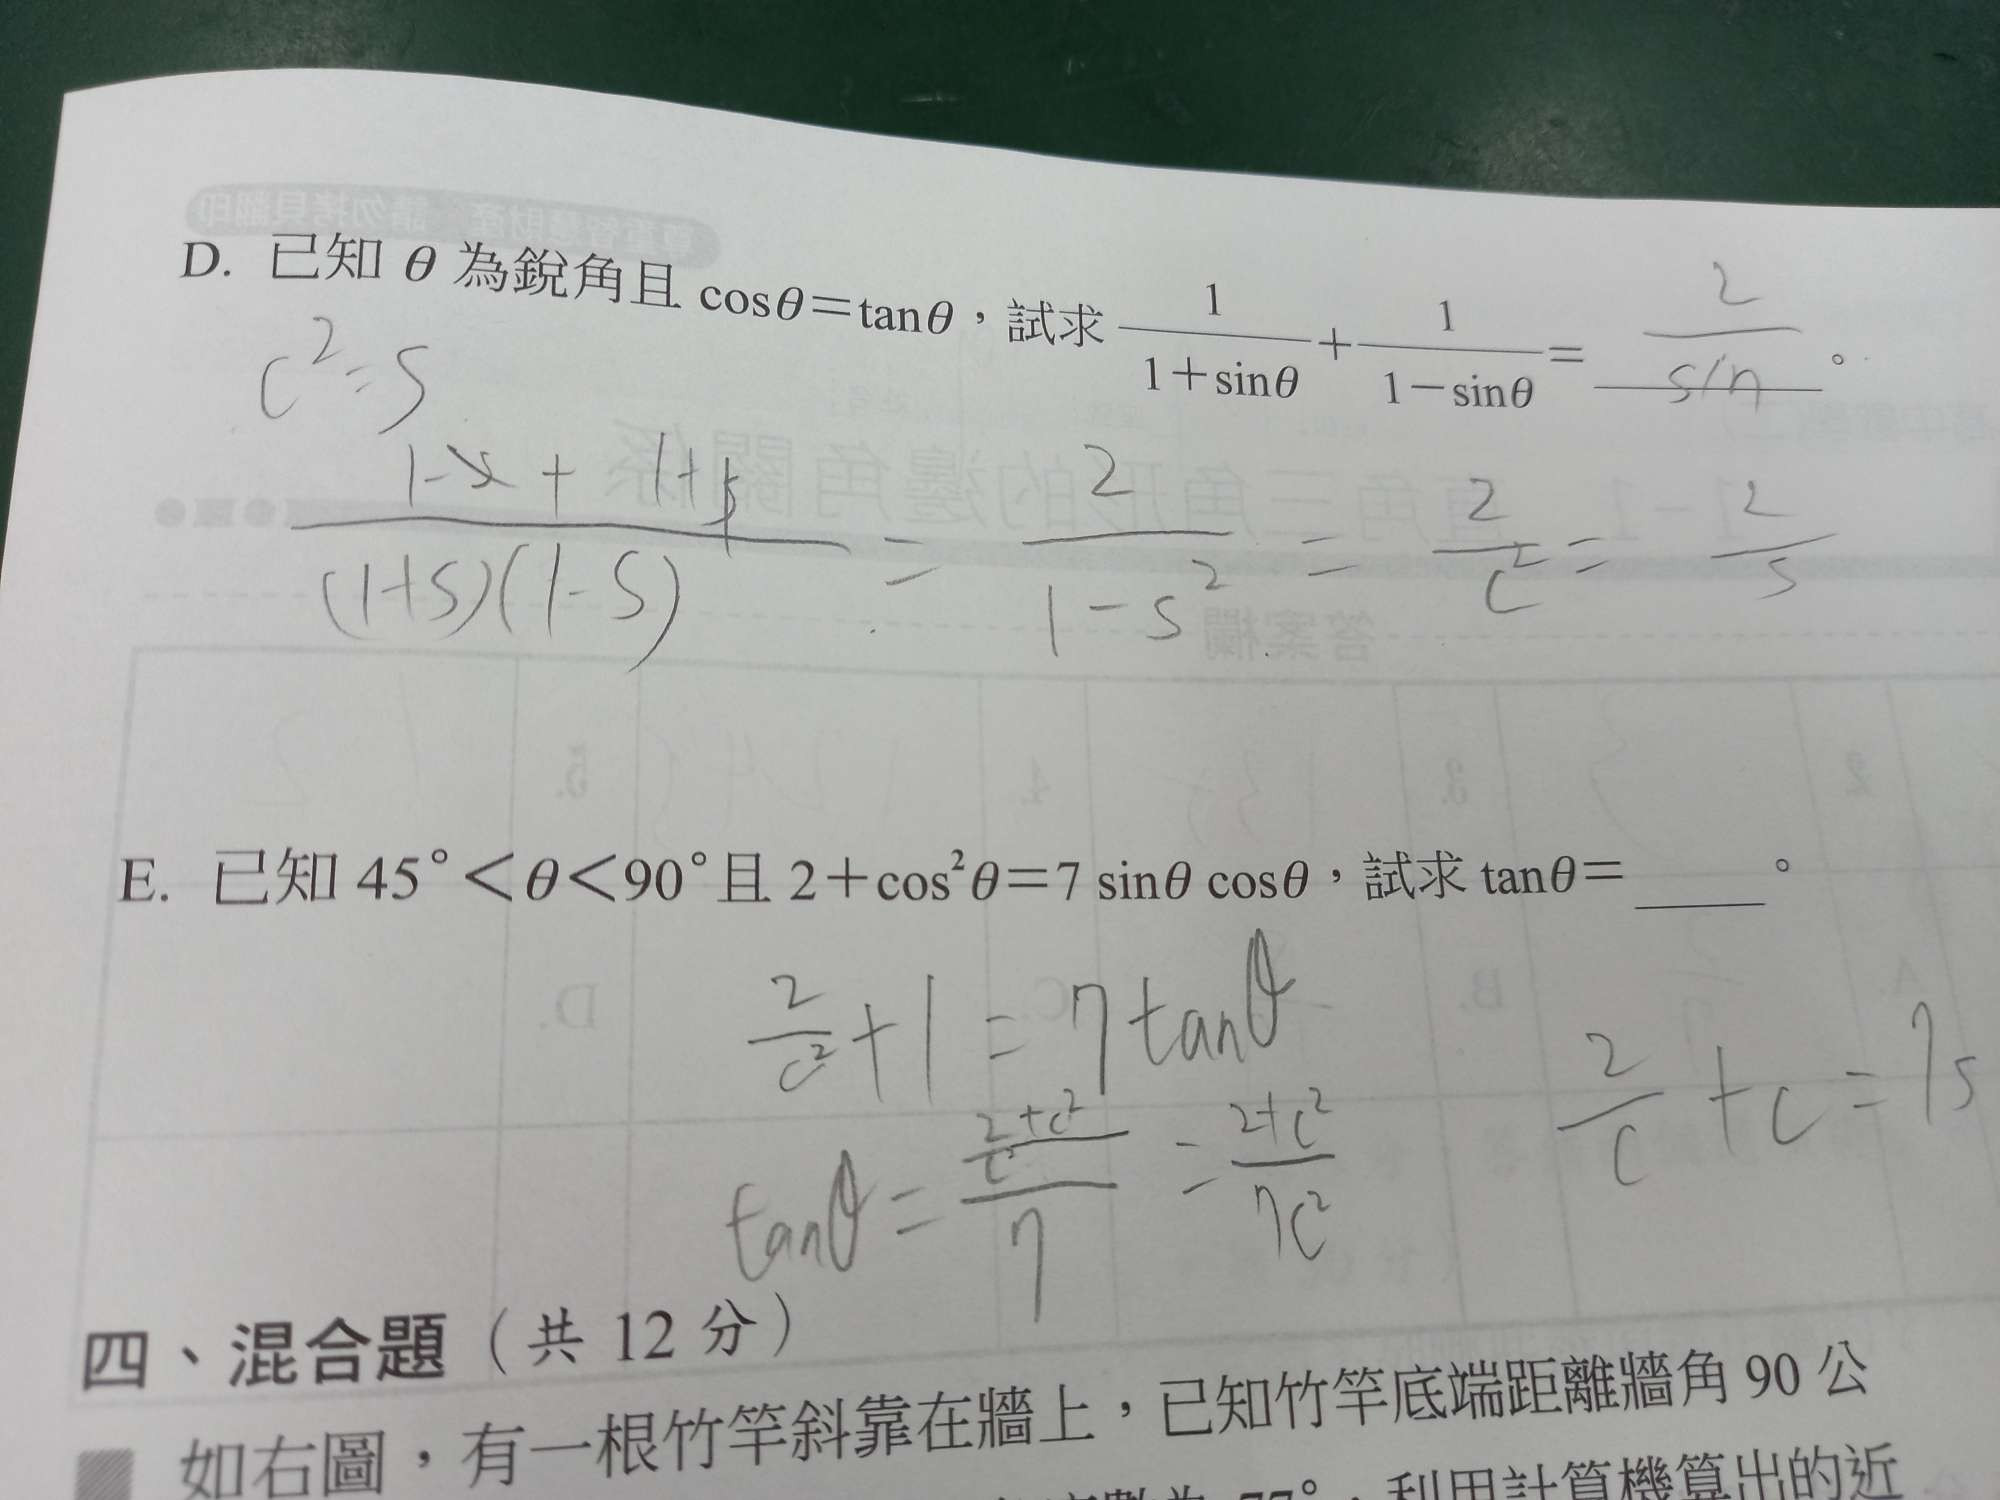 D. 已知 θ 為銳角且 cosθ＝tanθ，試求 1/(1＋sinθ) ＋ 1/(1－sinθ) ＝ 2/sin 。
c²=s
(1-s + 1+s)/((1+s)(1-s)) = 2/(1-s²) = 2/c² = 2/s
答案欄
E. 已知 45°＜θ＜90° 且 2＋cos²θ＝7 sinθ cosθ，試求 tanθ＝____。
2/c² + 1 = 7tanθ
2/c + c = 7s
tanθ = = (2+c²)/7c²
四、混合題（共 12 分）
如右圖，有一根竹竿斜靠在牆上，已知竹竿底端距離牆角 90 公
77°，利用計算機算出的近